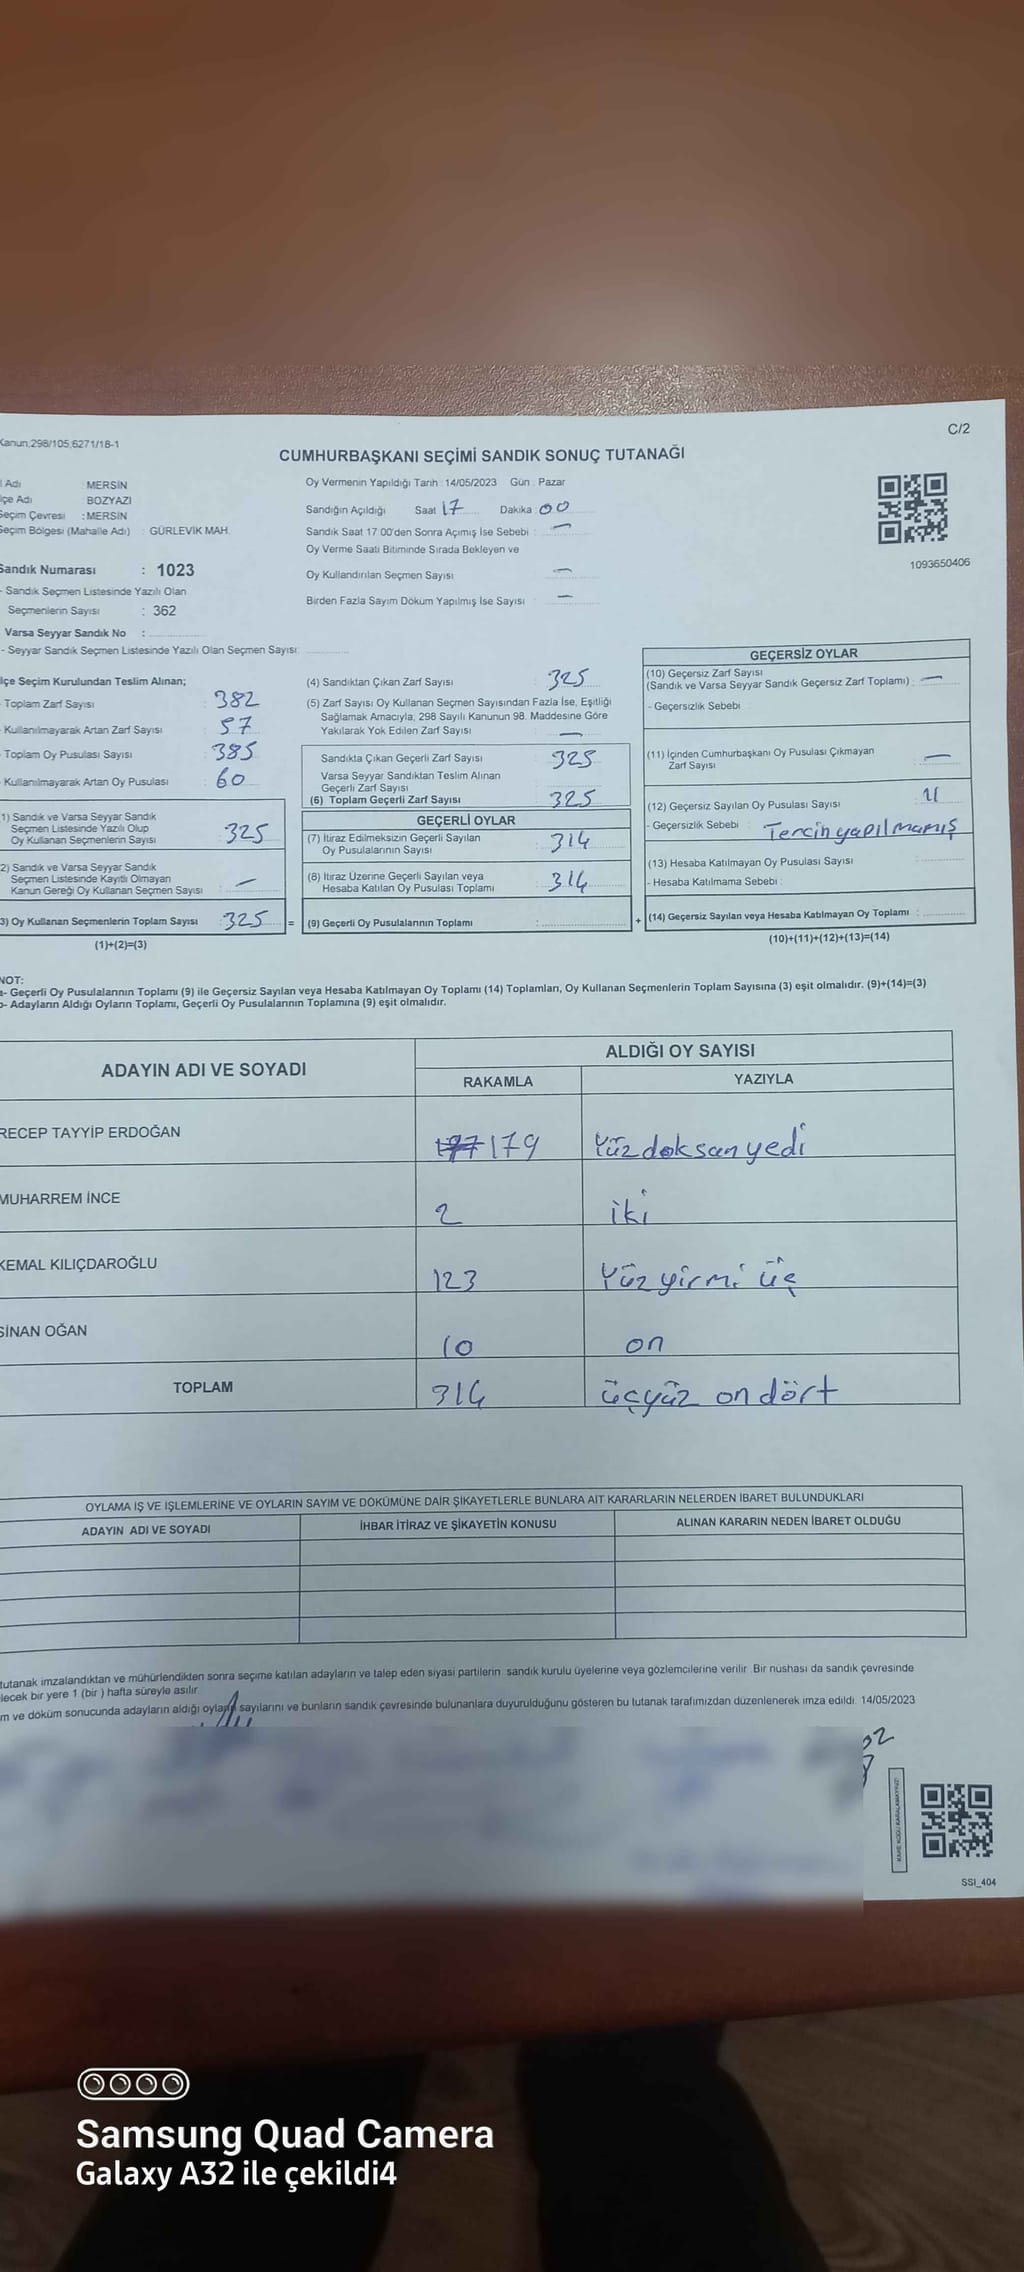 C/2
Kanun,298/105,6271/18-1
CUMHURBAŞKANI SEÇİMİ SANDIK SONUÇ TUTANAĞI
l Adı : MERSİN
lçe Adı : BOZYAZI
Seçim Çevresi : MERSİN
Seçim Bölgesi (Mahalle Adı) : GÜRLEVİK MAH.
Sandık Numarası : 1023
- Sandık Seçmen Listesinde Yazılı Olan
Seçmenlerin Sayısı : 362
Varsa Seyyar Sandık No :
- Seyyar Sandık Seçmen Listesinde Yazılı Olan Seçmen Sayısı:
Oy Vermenin Yapıldığı Tarih : 14/05/2023 Gün : Pazar
Sandığın Açıldığı Saat 17 Dakika : 00
Sandık Saat 17 00'den Sonra Açımış İse Sebebi : —
Oy Verme Saati Bitiminde Sırada Bekleyen ve
Oy Kullandırılan Seçmen Sayısı —
Birden Fazla Sayım Döküm Yapılmış İse Sayısı : —
1093650406
lçe Seçim Kurulundan Teslim Alınan;
- Toplam Zarf Sayısı : 382
- Kullanılmayarak Artan Zarf Sayısı : 57
- Toplam Oy Pusulası Sayısı : 385
- Kullanılmayarak Artan Oy Pusulası : 60
1) Sandık ve Varsa Seyyar Sandık
Seçmen Listesinde Yazılı Olup
Oy Kullanan Seçmenlerin Sayısı : 325
2) Sandık ve Varsa Seyyar Sandık
Seçmen Listesinde Kayıtlı Olmayan
Kanun Gereği Oy Kullanan Seçmen Sayısı : —
3) Oy Kullanan Seçmenlerin Toplam Sayısı : 325 =
(1)+(2)=(3)
(4) Sandıktan Çıkan Zarf Sayısı : 325
(5) Zarf Sayısı Oy Kullanan Seçmen Sayısından Fazla İse, Eşitliği
Sağlamak Amacıyla, 298 Sayılı Kanunun 98. Maddesine Göre
Yakılarak Yok Edilen Zarf Sayısı —
Sandıkta Çıkan Geçerli Zarf Sayısı : 325
Varsa Seyyar Sandıktan Teslim Alınan
Geçerli Zarf Sayısı
(6) Toplam Geçerli Zarf Sayısı : 325
GEÇERLİ OYLAR
(7) İtiraz Edilmeksizin Geçerli Sayılan
Oy Pusulalarının Sayısı : 314
(8) İtiraz Üzerine Geçerli Sayılan veya
Hesaba Katılan Oy Pusulası Toplamı : 314
(9) Geçerli Oy Pusulalarının Toplamı : +
GEÇERSİZ OYLAR
(10) Geçersiz Zarf Sayısı
(Sandık ve Varsa Seyyar Sandık Geçersiz Zarf Toplamı) : —
- Geçersizlik Sebebi :
(11) İçinden Cumhurbaşkanı Oy Pusulası Çıkmayan
Zarf Sayısı : —
(12) Geçersiz Sayılan Oy Pusulası Sayısı : 11
- Geçersizlik Sebebi : Tercih yapılmamış
(13) Hesaba Katılmayan Oy Pusulası Sayısı :
- Hesaba Katılmama Sebebi :
(14) Geçersiz Sayılan veya Hesaba Katılmayan Oy Toplamı :
(10)+(11)+(12)+(13)=(14)
NOT:
a- Geçerli Oy Pusulalarının Toplamı (9) ile Geçersiz Sayılan veya Hesaba Katılmayan Oy Toplamı (14) Toplamları, Oy Kullanan Seçmenlerin Toplam Sayısına (3) eşit olmalıdır. (9)+(14)=(3)
b- Adayların Aldığı Oyların Toplamı, Geçerli Oy Pusulalarının Toplamına (9) eşit olmalıdır.
ADAYIN ADI VE SOYADI ALDIĞI OY SAYISI
RAKAMLA YAZIYLA
RECEP TAYYİP ERDOĞAN 197 179 Yüz doksan yedi
MUHARREM İNCE 2 iki
KEMAL KILIÇDAROĞLU 123 Yüz yirmi üç
SİNAN OĞAN 10 on
TOPLAM 314 üçyüz on dört
OYLAMA İŞ VE İŞLEMLERİNE VE OYLARIN SAYIM VE DÖKÜMÜNE DAİR ŞİKAYETLERLE BUNLARA AİT KARARLARIN NELERDEN İBARET BULUNDUKLARI
ADAYIN ADI VE SOYADI İHBAR İTİRAZ VE ŞİKAYETİN KONUSU ALINAN KARARIN NEDEN İBARET OLDUĞU
tutanak imzalandıktan ve mühürlendikten sonra seçime katılan adayların ve talep eden siyasi partilerin sandık kurulu üyelerine veya gözlemcilerine verilir. Bir nüshası da sandık çevresinde
lecek bir yere 1 (bir ) hafta süreyle asılır
m ve döküm sonucunda adayların aldığı oyların sayılarını ve bunların sandık çevresinde bulunanlara duyurulduğunu gösteren bu tutanak tarafımızdan düzenlenerek imza edildi. 14/05/2023
SSI_404
Samsung Quad Camera
Galaxy A32 ile çekildi4